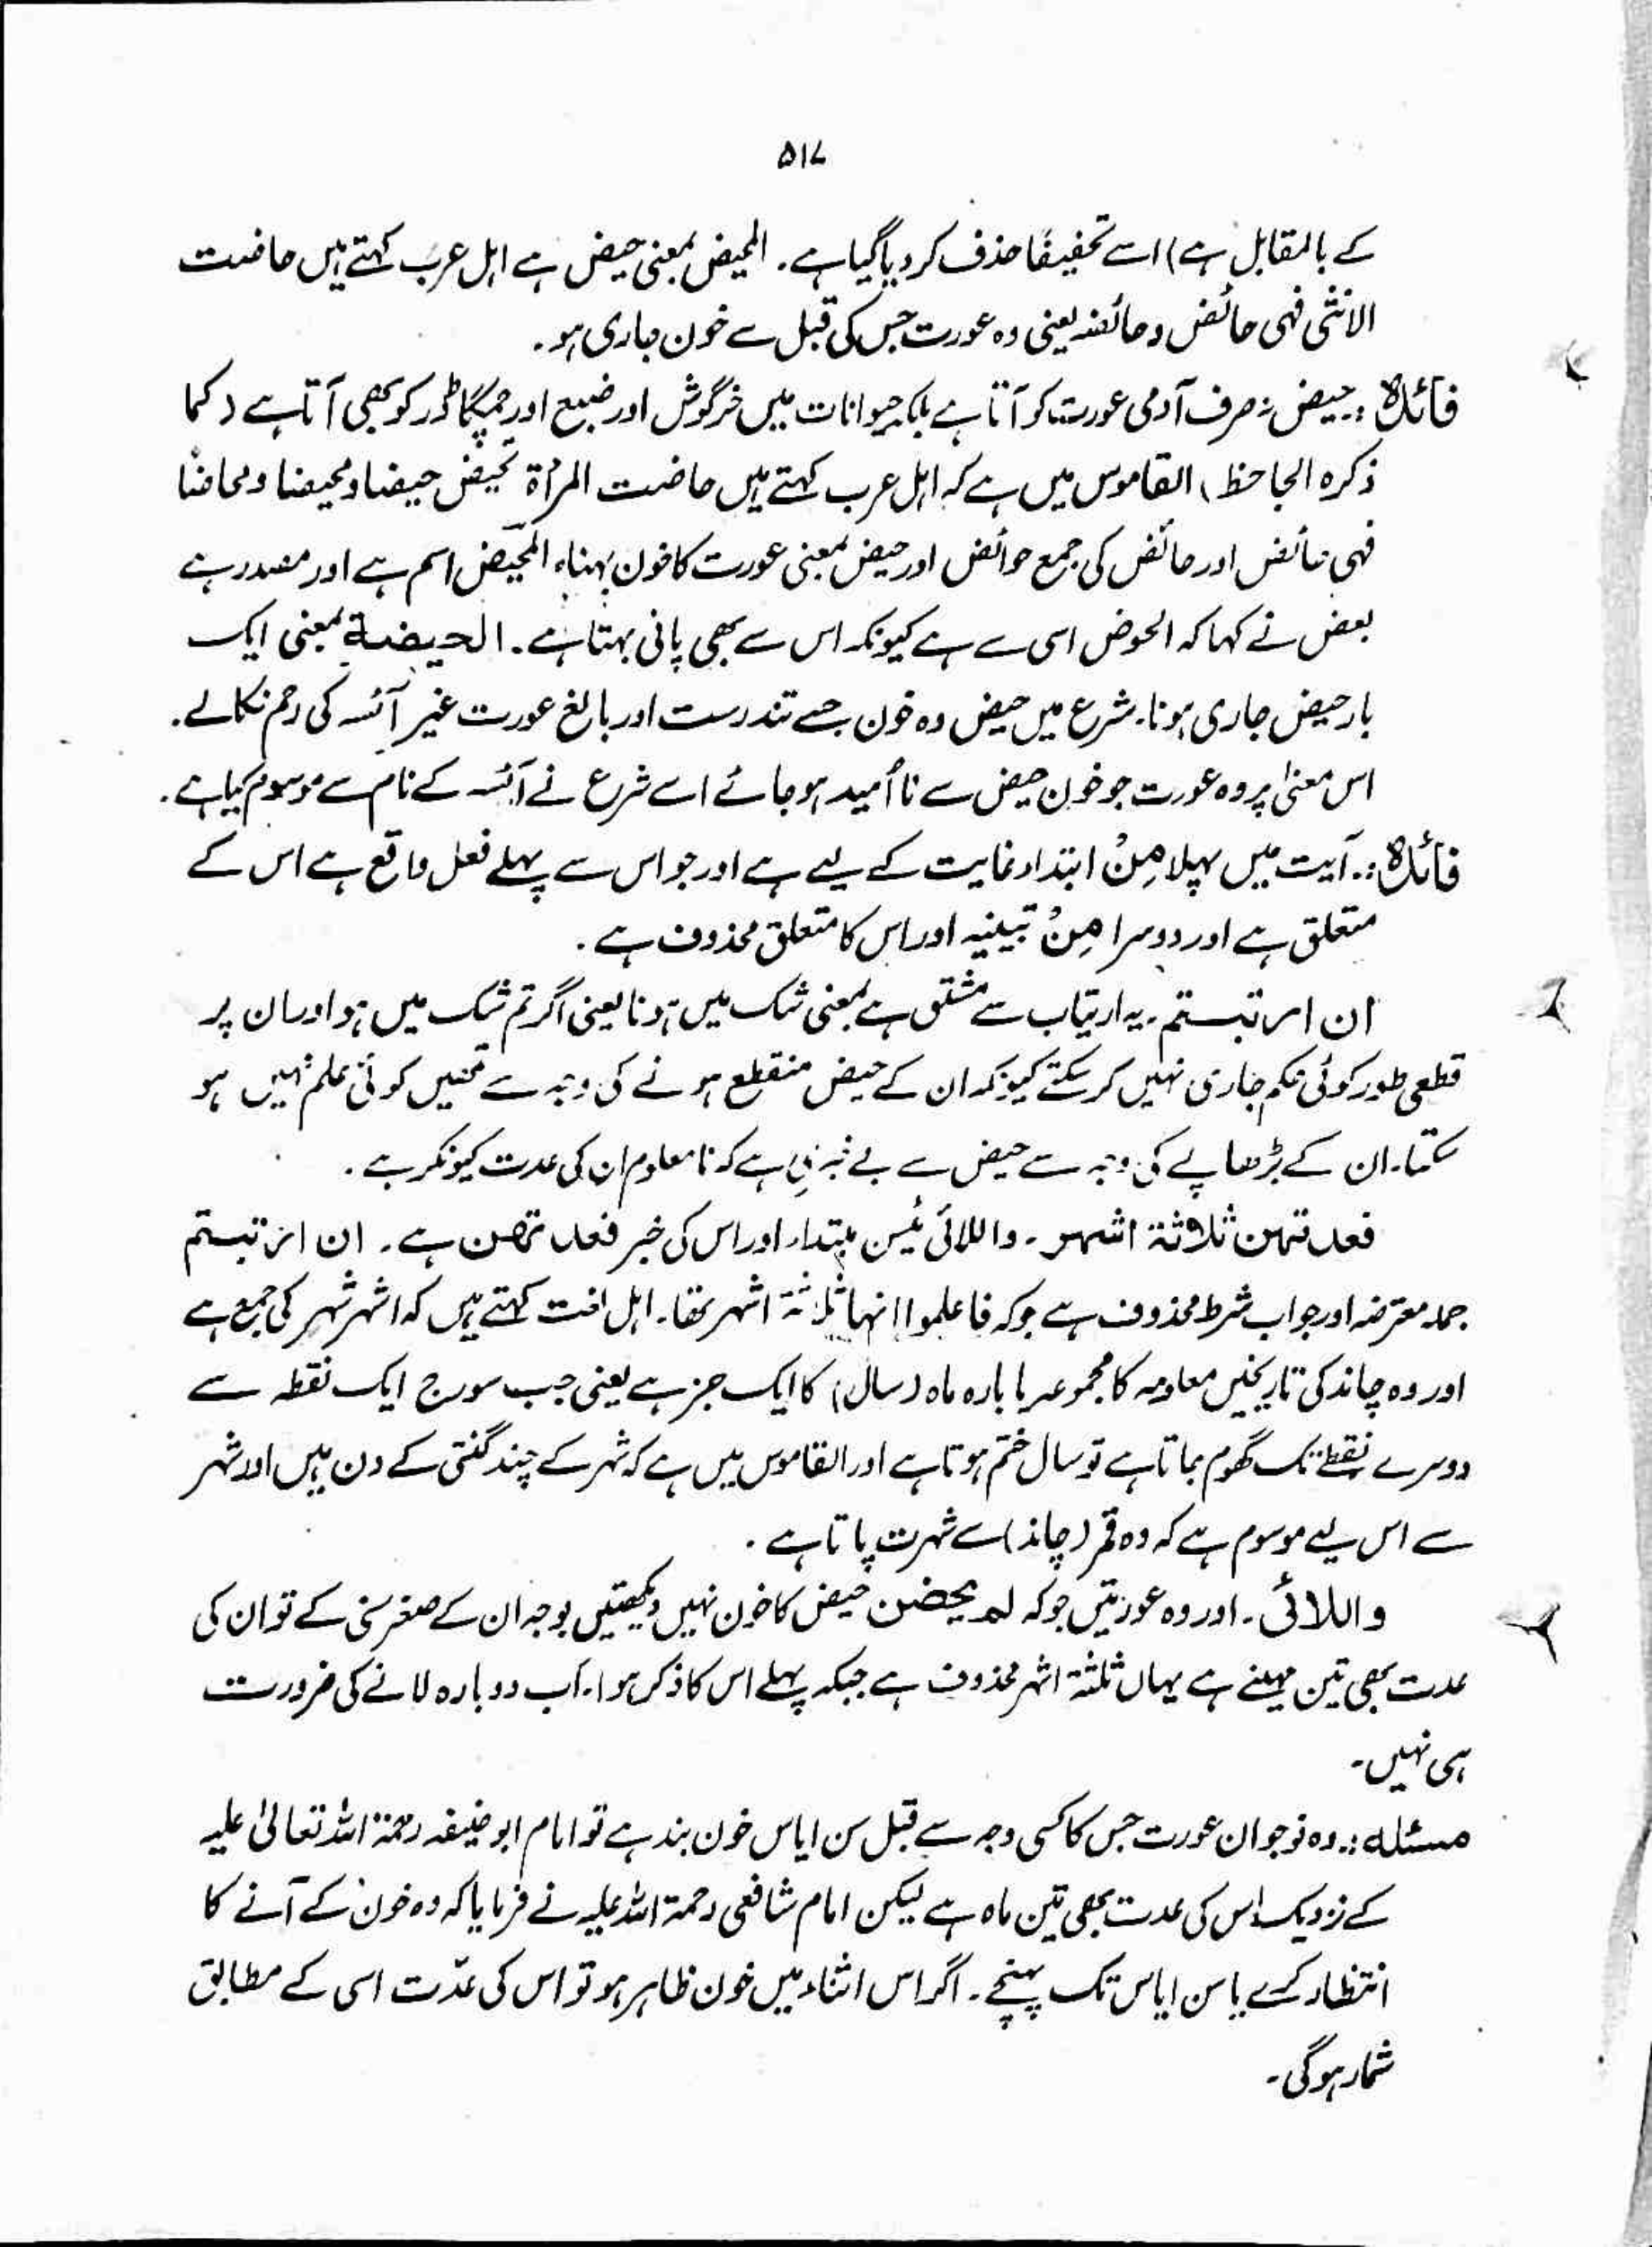 ۵۱۷
کے بالمقابل ہے) اسے تخفیفًا حذف کر دیا گیا ہے۔ المحیض بمعنی حیض ہے اہل عرب کہتے ہیں حاضت
الانثٰی فہی حائض و حائضہ یعنی وہ عورت جس کی قبل سے خون جاری ہو۔
فائدہ :۔ حیض نہ صرف آدمی عورت کو آتا ہے بلکہ حیوانات میں خرگوش اور ضبع اور چمگاڈر کو بھی آتا ہے (کما
ذکرہ الجاحظ) القاموس میں ہے کہ اہل عرب کہتے ہیں حاضت المرأۃ تحیض حیضا و محیضا و محاضًا
فہی حائض اور حائض کی جمع حوائض اور حیض بمعنی عورت کا خون بہنا، المحیض اسم ہے اور مصدر ہے
بعض نے کہا کہ الحوض اسی سے ہے کیونکہ اس سے بھی پانی بہتا ہے۔ الحیضۃ بمعنی ایک
بار حیض جاری ہونا۔ شرع میں حیض وہ خون جسے تندرست اور بالغ عورت غیر آئسہ کی رحم نکالے۔
اس معنٰی پر وہ عورت جو خون حیض سے نا اُمید ہو جائے اسے شرع نے آئسہ کے نام سے موسوم کیا ہے۔
فائدہ :۔ آیت میں پہلا مِنْ ابتداء غایت کے لیے ہے اور جو اس سے پہلے فعل واقع ہے اس کے
متعلق ہے اور دوسرا مِنْ تبیینیہ اور اس کا متعلق محذوف ہے۔
ان ارتبستم۔ یہ ارتیاب سے مشتق ہے بمعنی شک میں ہونا یعنی اگر تم شک میں ہو اور ان پر
قطعی طور کوئی حکم جاری نہیں کر سکتے کیونکہ ان کے حیض منقطع ہونے کی وجہ سے تمھیں کوئی علم نہیں ہو
سکتا۔ ان کے بڑھاپے کی وجہ سے حیض سے بے خبری ہے کہ نامعلوم ان کی عدت کیونکر ہے۔
فعدتہن ثلاثۃ اشہر۔ واللائی یئسن مبتداء اور اس کی خبر فعدتھن ہے۔ ان ارتبستم
جملہ معترضہ اور جواب شرط محذوف ہے جو کہ فاعلموا انہا ثلاثۃ اشہر تھا۔ اہل لغت کہتے ہیں کہ اشہر شہر کی جمع ہے
اور وہ چاند کی تاریخیں معلومہ کا مجموعہ یا بارہ ماہ (سال) کا ایک جز ہے یعنی جب سورج ایک نقطہ سے
دوسرے نقطے تک گھوم جاتا ہے تو سال ختم ہوتا ہے اور القاموس میں ہے کہ شہر کے چند گنتی کے دن ہیں اور شہر
سے اس لیے موسوم ہے کہ وہ قمر (چاند) سے شہرت پاتا ہے۔
واللائی۔ اور وہ عورتیں جو کہ لم یحضن حیض کا خون نہیں دیکھتیں بوجہ ان کے صغر سنی کے تو ان کی
عدت بھی تین مہینے ہے یہاں ثلثۃ اشہر محذوف ہے جبکہ پہلے اس کا ذکر ہوا۔ اب دوبارہ لانے کی ضرورت
ہی نہیں۔
مسئلہ :۔ وہ نوجوان عورت جس کا کسی وجہ سے قبل سن ایاس خون بند ہے تو امام ابو حنیفہ رحمۃ اللہ تعالیٰ علیہ
کے نزدیک اس کی عدت بھی تین ماہ ہے لیکن امام شافعی رحمۃ اللہ علیہ نے فرمایا کہ وہ خون کے آنے کا
انتظار کرے یا سن ایاس تک پہنچے۔ اگر اس اثناء میں خون ظاہر ہو تو اس کی عدّت اسی کے مطابق
شمار ہوگی۔